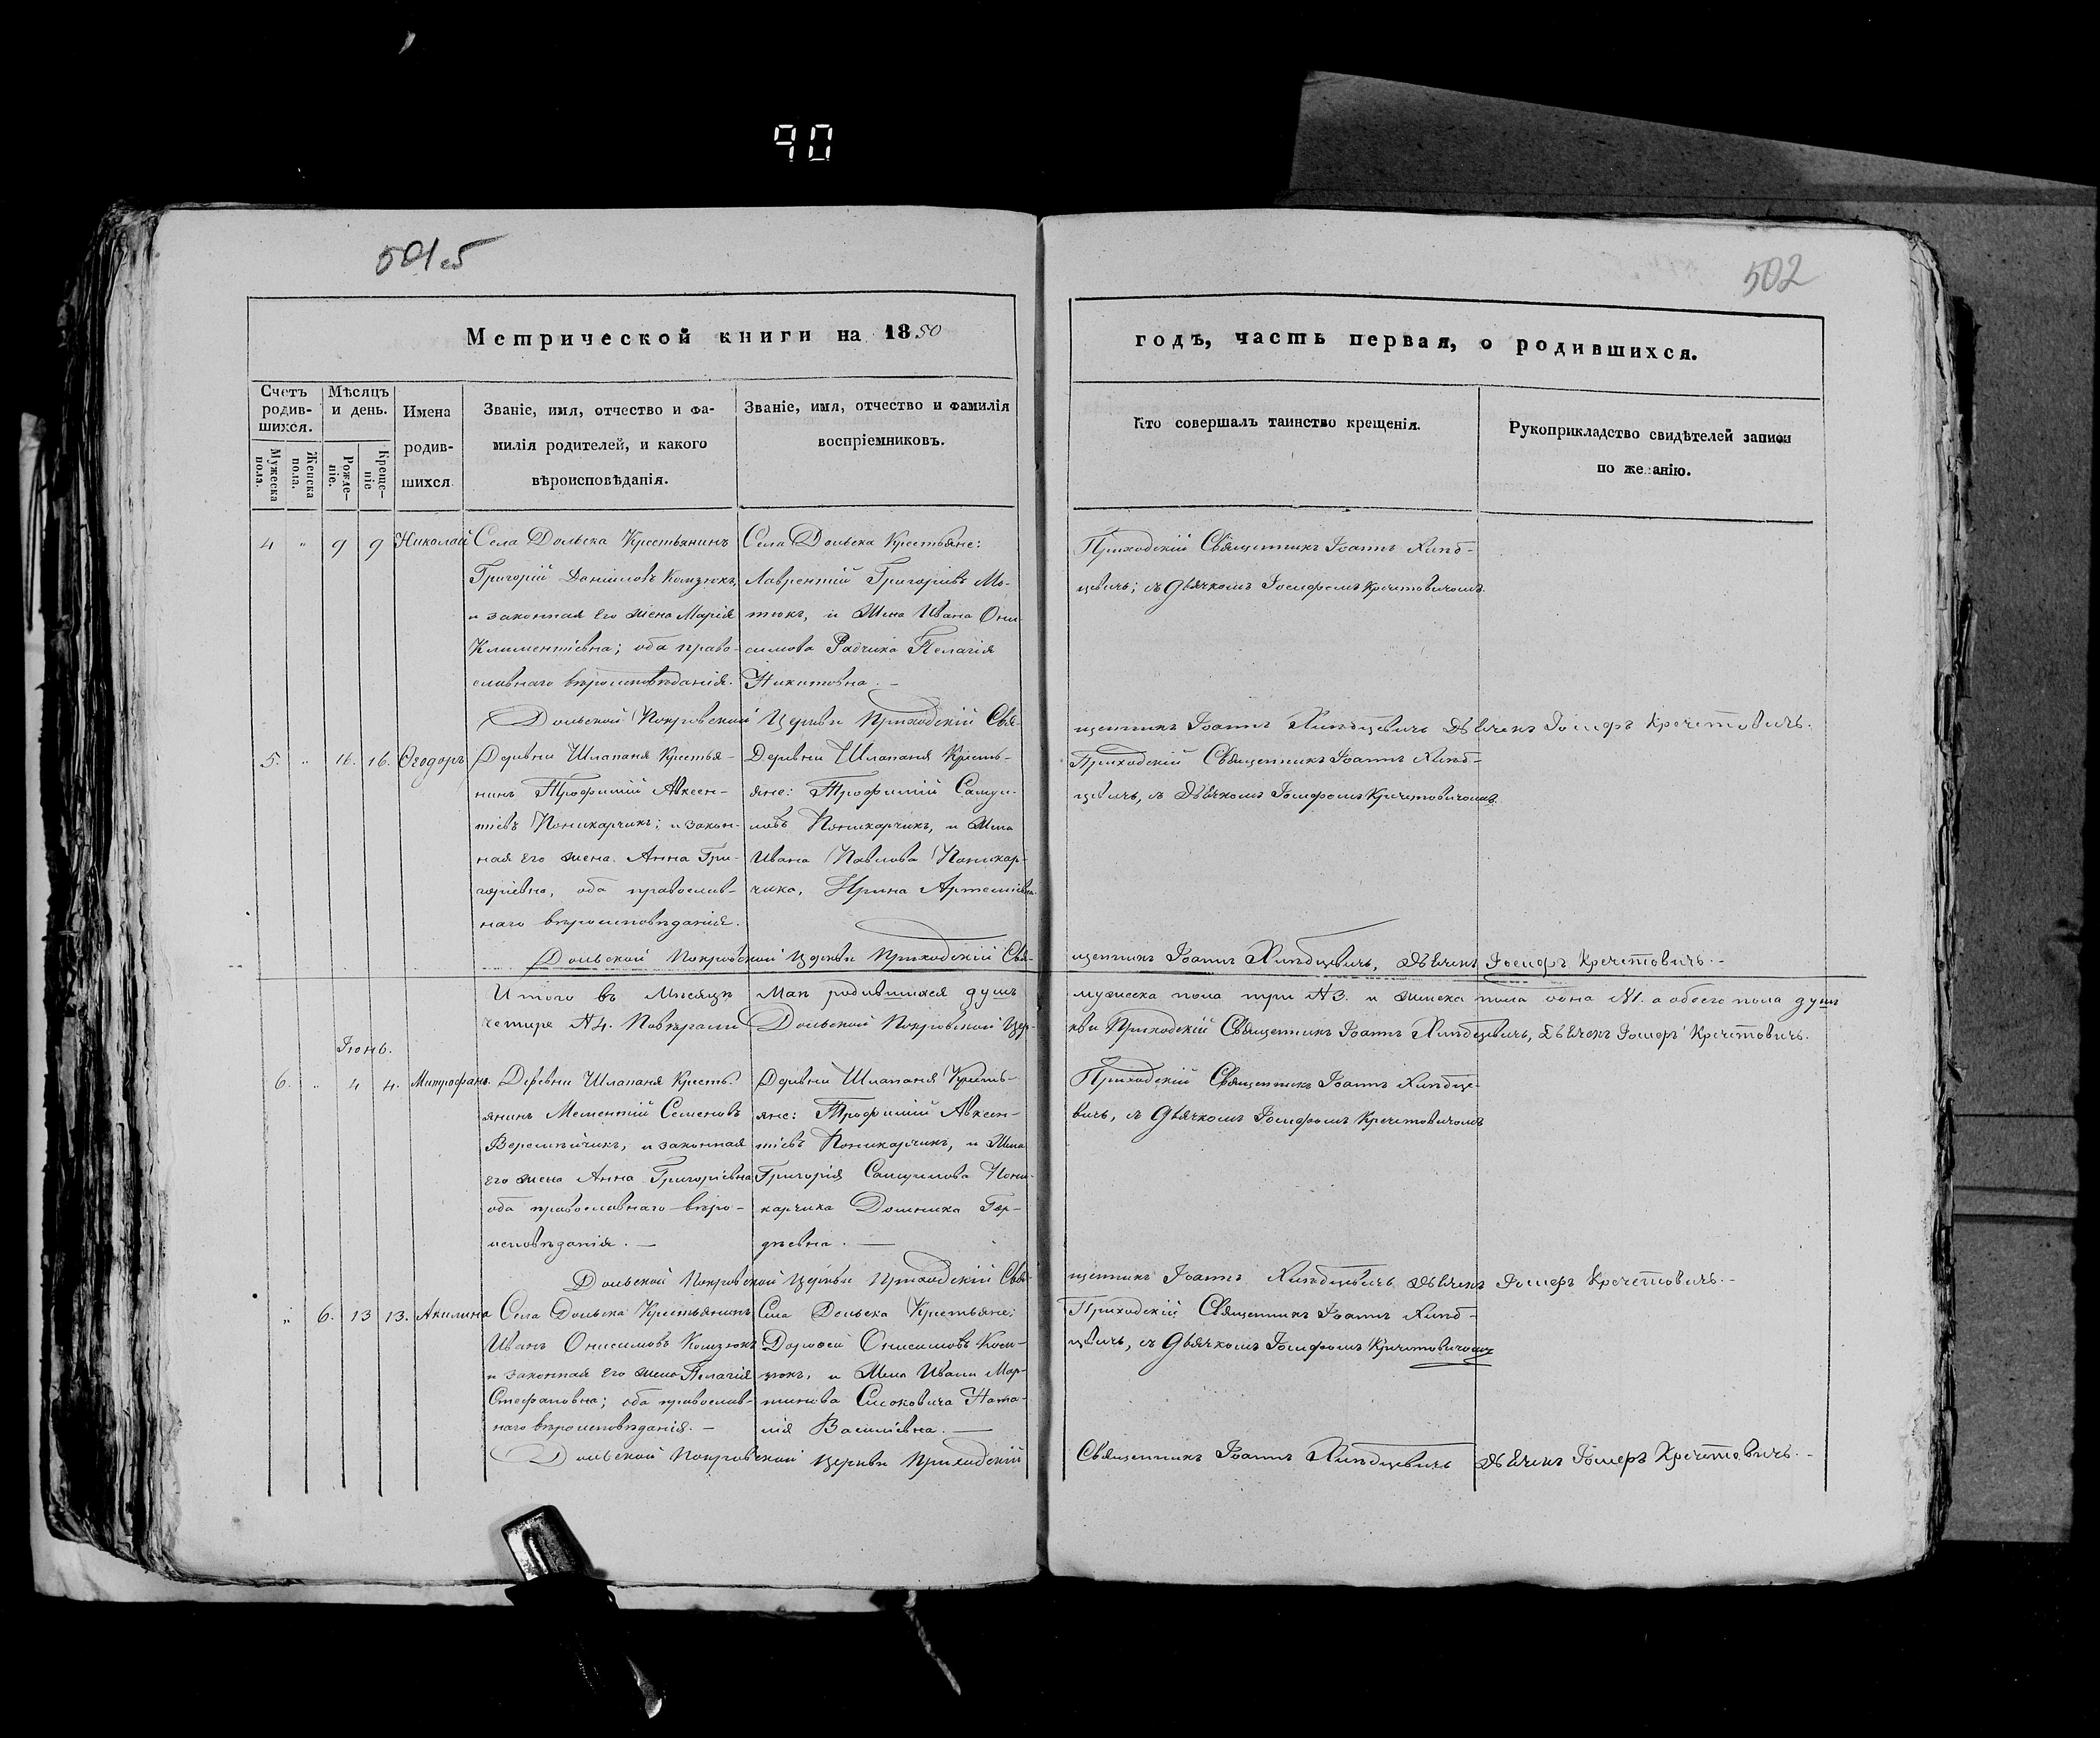 90
501об
502
Метрической книги на 1850
годъ, часть первая, о родившихся.
Счетъ родив-шихся.
Мѣсяцъ и день.
Имена родив-шихся
Званіе, имя, отчество и фа-
милія родителей, и какого
вѣроисповѣданія.
Званіе, имя, отчество и фамилія
воспріемниковъ.
Кто совершалъ таинство крещенія.
Рукоприкладство свидѣтелей записи
по желанію.
Мужеска пола.
Женска пола.
Рожде-ніе.
Креще-ніе
4 " 9 9 Николай
Села Дольска Крестьянинъ
Григорій Даніиловъ Комзюкъ,
и законная его жена Марія
Климентіевна; оба право-
славнаго вѣроисповѣданія.
Села Дольска Крестьяне:
Лаврентій Григоріевъ Ма-
тюкъ, и Жена Ивана Они-
симова Радчика Пелагія
Никитовна. –
Приходскій Священникъ Іоаннъ Хинд-
цевичь; съ дьячкомъ Іосифомъ Кречетовичомъ.
Дольской Покровской Церкви Приходскій Свя-
щенникъ Іоаннъ Дьячекъ Іосифъ Кречетовичъ.
5. " 16. 16. Ѳеодоръ
Деревни Шлапаня Крестья-
нинъ Трофимій Авксен-
тіевъ Поникарчикъ; и закон-
ная его жена Анна Гри-
горіевна, оба православ-
наго вѣроисповѣданія.
Деревни Шлапаня Кресть-
яне: Трофимій Самуи-
ловъ Поникарчикъ, и Жена
Ивана Павлова Поникар-
чика, Ирина Артеміевна.
Приходскій Священникъ Іоаннъ
съ Дьячкомъ Іосифомъ Кречетовичомъ.
Дольской Покровской Церкви Приходскій Свя-
щенникъ Іоаннъ Дьячекъ Іосифъ Кречетовичъ. –
Итого въ Мѣсяцѣ Маѣ родившихся душъ
мужеска пола три №3. и женска пола одна №1. а обоего пола душъ
четыре №4. Дольской Покровской Цер-
кви Приходскій Священникъ Іоаннъ Дьячекъ Іосифъ Кречетовичъ.
Іюнь.
6. " 4 4. Митрофанъ.
Деревни Шлапаня Кресть-
янинъ Мементій Семеновъ
Веремѣйчикъ, и законная
его жена Анна Григоріевна
оба православнаго вѣро-
исповѣданія. –
Деревни Шлапаня Кресть-
яне: Трофимій Авксен-
тіевъ Поникарчикъ, и Жена
Григорія Самуилова Пони-
карчика Домника Гор-
дѣевна. –
Приходскій Священникъ Іоаннъ
съ дьячкомъ Іосифомъ Кречетовичомъ
Дольской Покровской Церкви Приходскій Свя-
щенникъ Іоаннъ Дьячекъ Іосифъ Кречетовичъ. –
" 6. 13 13. Акилина
Села Дольска Крестьянинъ
Иванъ Онисимовъ Комзюкъ
и законная его жена Пелагія
Стефановна; оба православ-
наго вѣроисповѣданія. –
Села Дольска Крестьяне:
Дороѳей Онисимовъ Ком-
зюкъ, и Жена Ивана Мар-
тинова Ната-
лія Василіевна. –
Приходскій Священникъ Іоаннъ
съ дьячкомъ Іосифомъ Кречетовичомъ
Дольской Покровской Церкви Приходскій
Священникъ Іоаннъ Дьячекъ Іосифъ Кречетовичъ. –